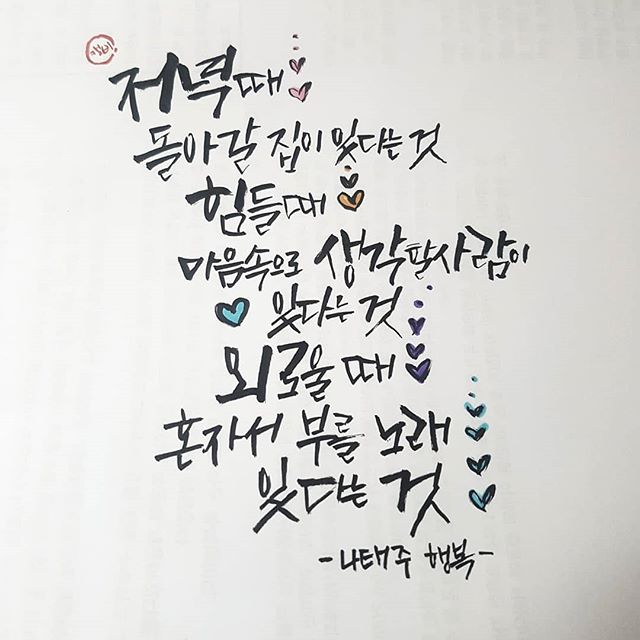 저녁때
돌아갈 집이 있다는 것
힘들때
마음속으로 생각할사람이
있다는 것
외로울 때
혼자서 부를 노래
있다는 것
-나태주 행복-